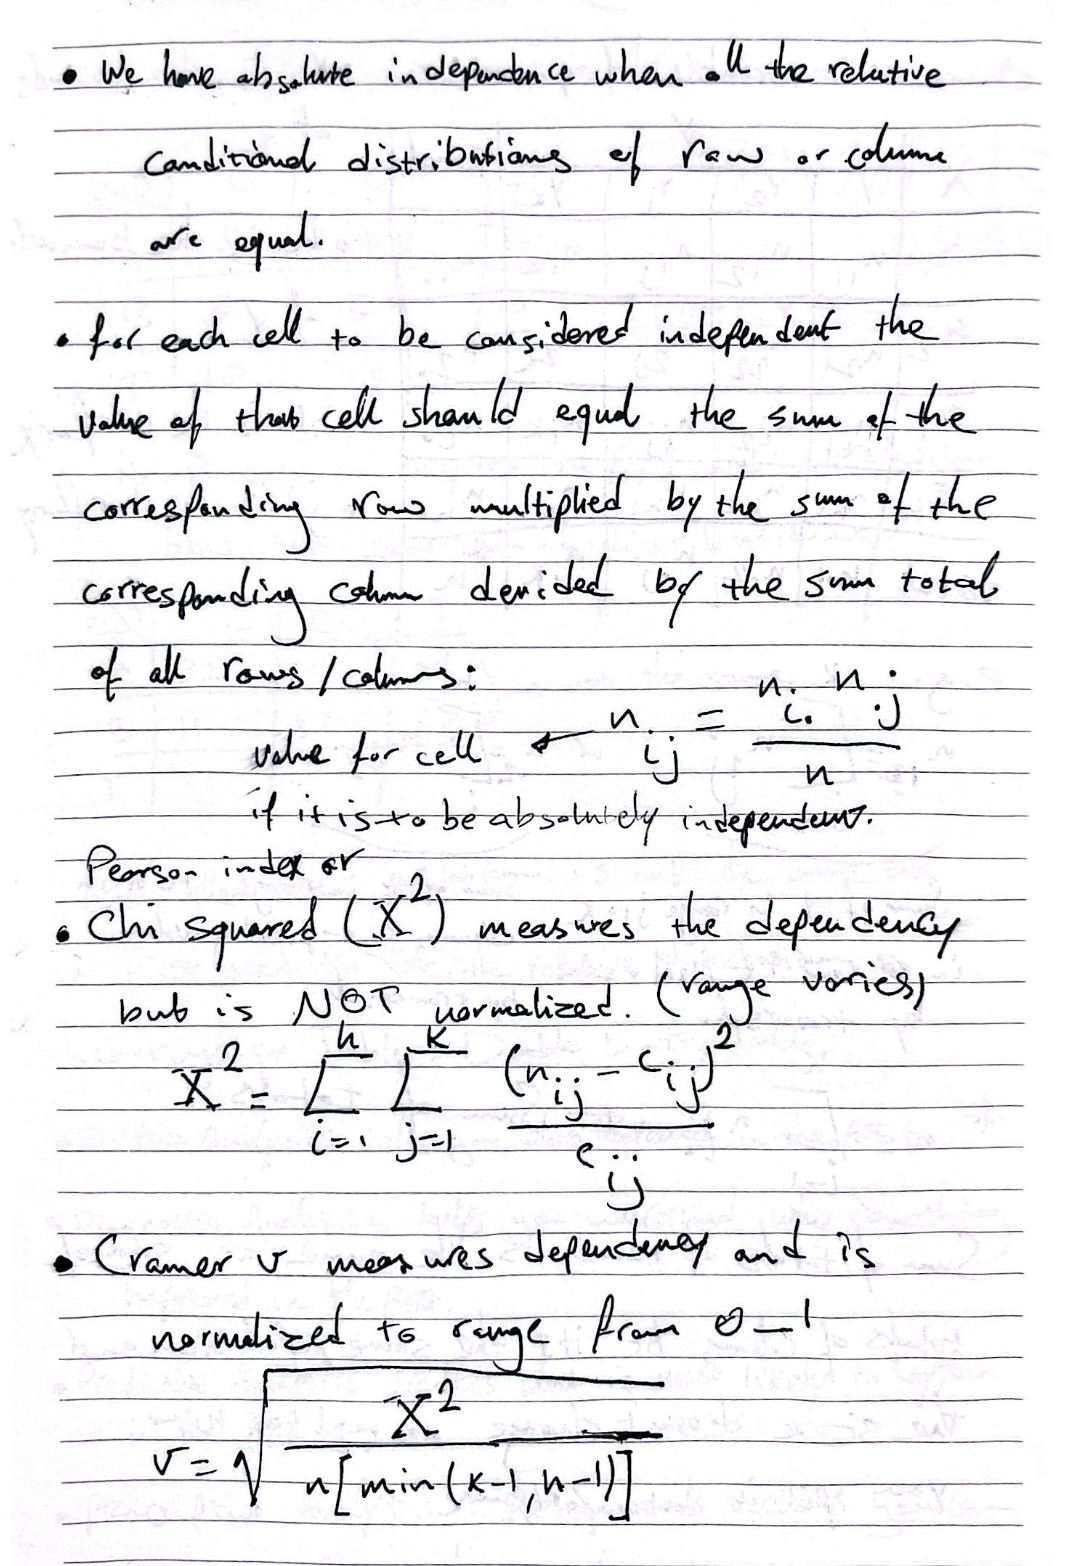 • We have absolute independence when all the relative
conditional distributions of row or column
are equal.
• for each cell to be considered independent the
value of that cell should equal the sum of the
corresponding row multiplied by the sum of the
corresponding column devided by the sum total
of all rows/columns:
value for cell ← n_ij = n_i. n_.j / n
if it is to be absolutely independent.
Pearson index or
• Chi squared (X²) measures the dependency
but is NOT normalized. (range varies)
X² = Σ_{i=1}^{h} Σ_{j=1}^{k} (n_ij - c_ij)² / e_ij
• Cramer v measures dependency and is
normalized to range from 0-1
v = √(X² / n[min(k-1, h-1)])